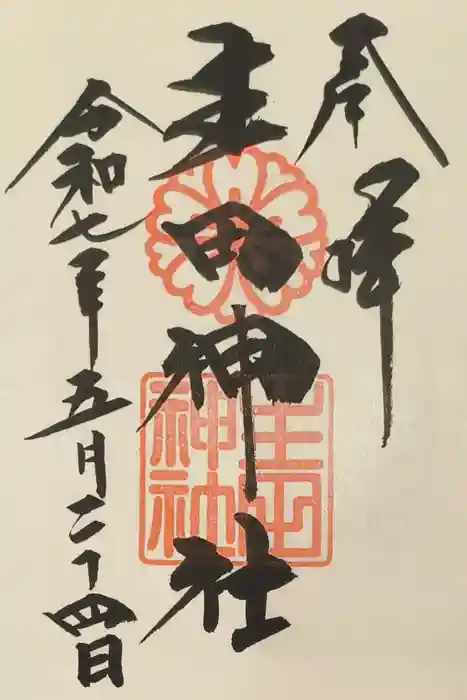 奉拝
生田神社
令和七年五月二十四日
生田
神社